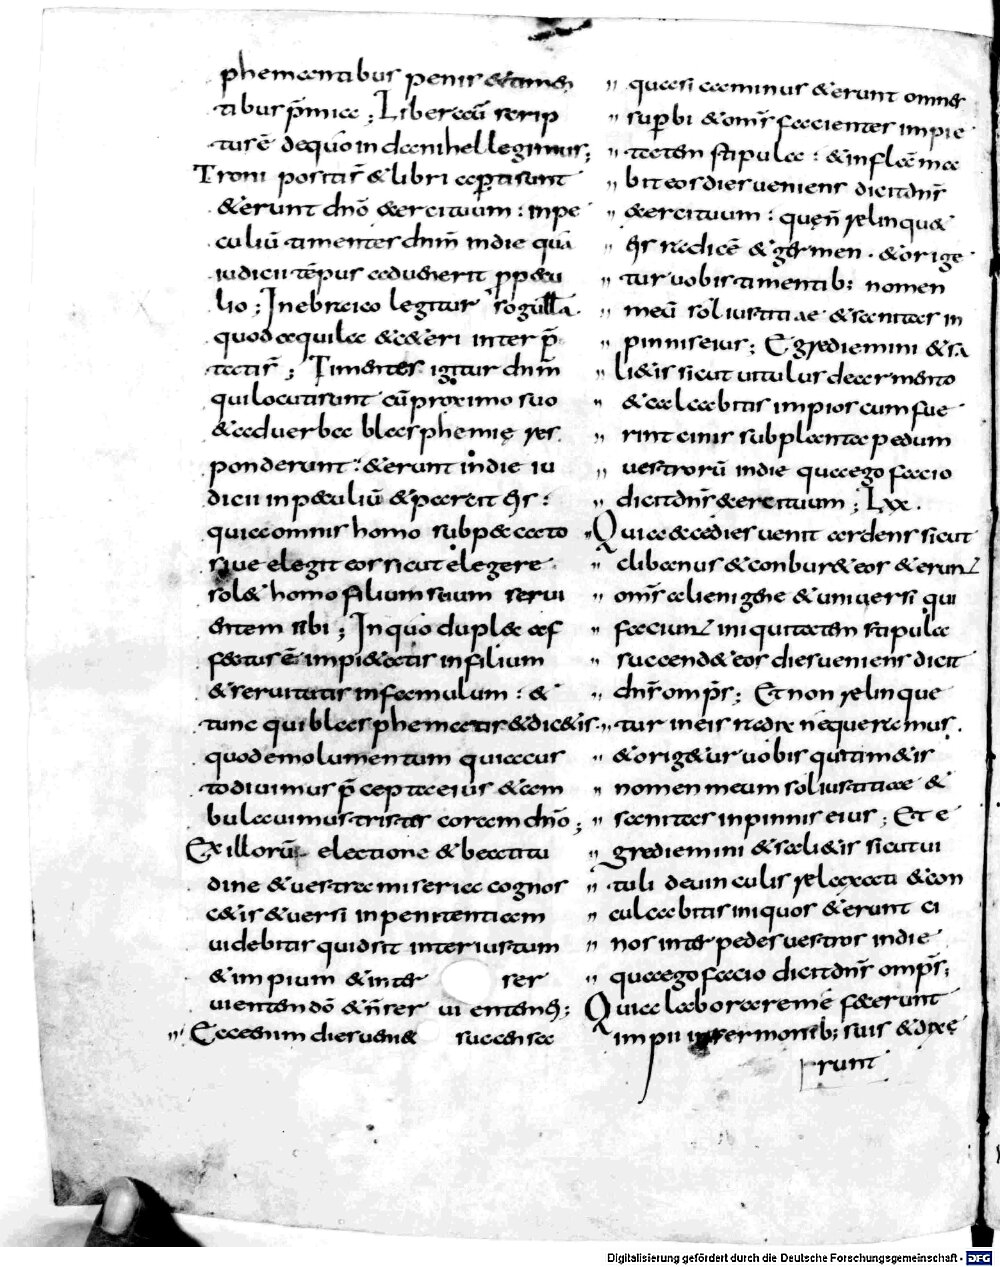 phemantibus penis & timen
tibus p̄mia ; Liber aū scrip
tus ē dequo in danihel legimus ;
Troni positis̄ & libri aperti sunt
& erunt dnō exercituum : inpe
culiū timentes dnm̄ indie quā
iudicii tēpus aduenerit ppecu
lio ; Inebraico legitur sogulla
quod aquila & ceteri inter p̄
tatis̄ ; Timentes igitur dnm̄
qui locuti sunt cū proximo suo
& aduerba blasphemię res
ponderunt : & erunt indie iu
dicii in peculiū & parcit eis :
quia omnis homo subpeccato
siue elegit eos sicut elegere
sol& homo filium suum serui
entem sibi ; In quo duplex af
fectus ē impietatis in filium
& seruitutis infamulum : &
tunc qui blasphematis & dicitis
quod emolumentum quia cus
todiuimus p̄cepta eius & am
bulauimus tristes coram dnō ;
Ex illorū electione & beatitu
dine & uestra miseria cognos
c&is & uersi in penitentiam
uidebitis quid sit inter iustum
& impium & inter ser
uientem dō & n̄ ser uientem ei ;
Ecce enim dies ueni& succensa
quasi caminus & erunt omnes
sup̄bi & om̄s facientes impie
tatem stipula : & inflāma
bit eos dies ueniens dicit dn̄s
exercituum : que n̄ relinqu&
eis radicē & germen · & orige
tur uobis timentib; nomen
meū sol iustitiae & sanitas in
pinnis eius ; Egrediemini & sa
li&is sicut uitulus de armento
& calcabitis impios cum fue
rint cinis sub planta pedum
uestrorū indie qua ego facio
dicit dn̄s exercituum ; Lxx .
Quia ecce dies uenit ardens sicut
clibanus & conbur& eos & erunt
om̄s alienigene & uniuersi qui
faciunt iniquitatem stipula
succend& eos dies ueniens dicit
dn̄s omp̄s ; Et non relinque
tur ineis radix neque ramus .
& orig&ur uobis qui tim&is
nomen meum sol iustitiae &
sanitas inpinnis eius ; Et e
grediemini & sali&is sicut ui
tuli deuinculis relaxati & con
culcabitis iniquos & erunt ci
nis inter pedes uestros indie
qua ego facio dicit dn̄s omp̄s ;
Quia laborare me fecerunt
impii insermonib; suis & dixe
runt
Digitalisierung gefördert durch die Deutsche Forschungsgemeinschaft - DFG